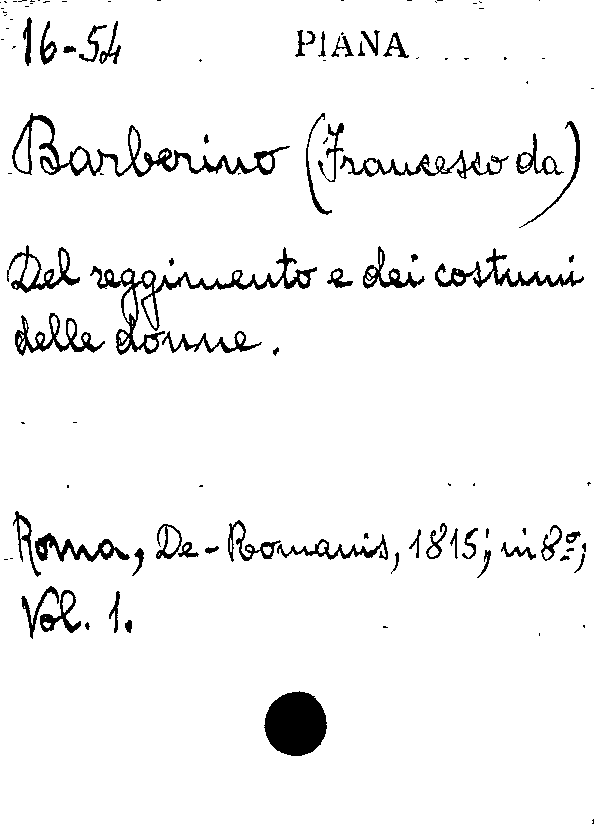 16-54 PIANA
Barberino (Francesco da)
Del reggimento e dei costumi
delle donne.
Roma, De-Romanis, 1815; in 8º;
Vol. 1.